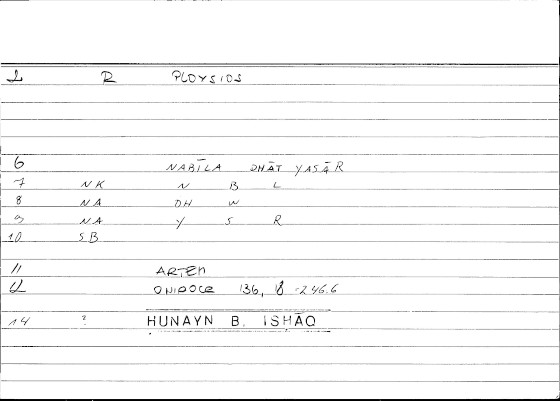 1 R PLOYSIOS
6 NABĪLA DHĀT YASĀR
7 NK N B L
8 NA DH W
9 NA Y S R
10 SB
11 ARTEM
12 ONIROCR 136, 18 -246.6
14 ? ḤUNAYN B. ISḤĀQ